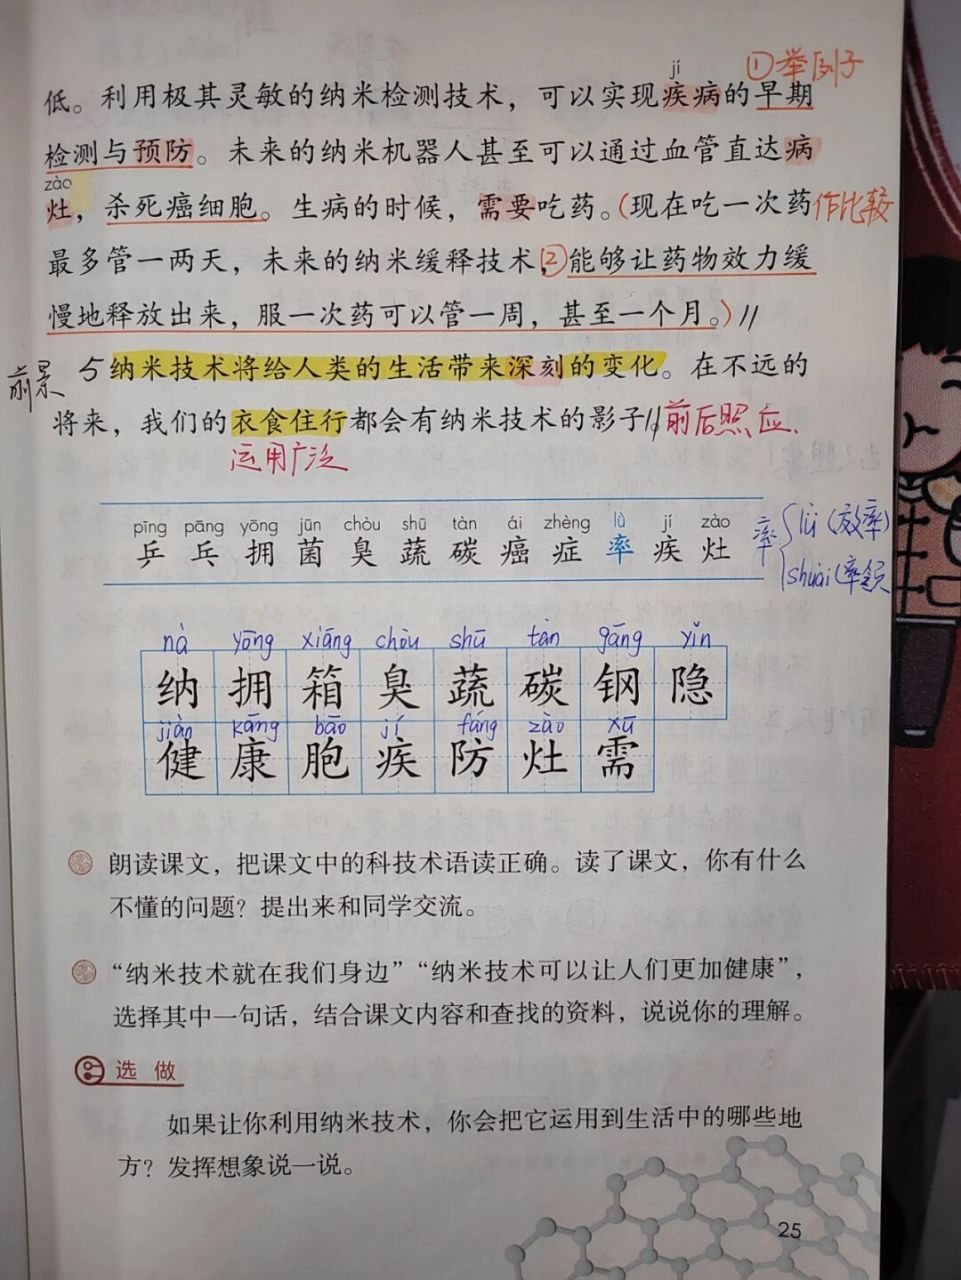 ①举例子
jí
低。利用极其灵敏的纳米检测技术，可以实现疾病的早期
检测与预防。未来的纳米机器人甚至可以通过血管直达病
zào
灶，杀死癌细胞。生病的时候，需要吃药。(现在吃一次药 作比较
最多管一两天，未来的纳米缓释技术，②能够让药物效力缓
慢地释放出来，服一次药可以管一周，甚至一个月。)//
前景 5 纳米技术将给人类的生活带来深刻的变化。在不远的
将来，我们的衣食住行都会有纳米技术的影子。// 前后照应、
运用广泛
pīng pāng yōng jūn chòu shū tàn ái zhèng lǜ jí zào
乒 乓 拥 菌 臭 蔬 碳 癌 症 率 疾 灶
率 lǜ (效率)
shuài (率领
nà yōng xiāng chòu shū tàn gāng yǐn
纳 拥 箱 臭 蔬 碳 钢 隐
jiàn kāng bāo jí fáng zào xū
健 康 胞 疾 防 灶 需
朗读课文，把课文中的科技术语读正确。读了课文，你有什么
不懂的问题？提出来和同学交流。
“纳米技术就在我们身边”“纳米技术可以让人们更加健康”，
选择其中一句话，结合课文内容和查找的资料，说说你的理解。
选做
如果让你利用纳米技术，你会把它运用到生活中的哪些地
方？发挥想象说一说。
25